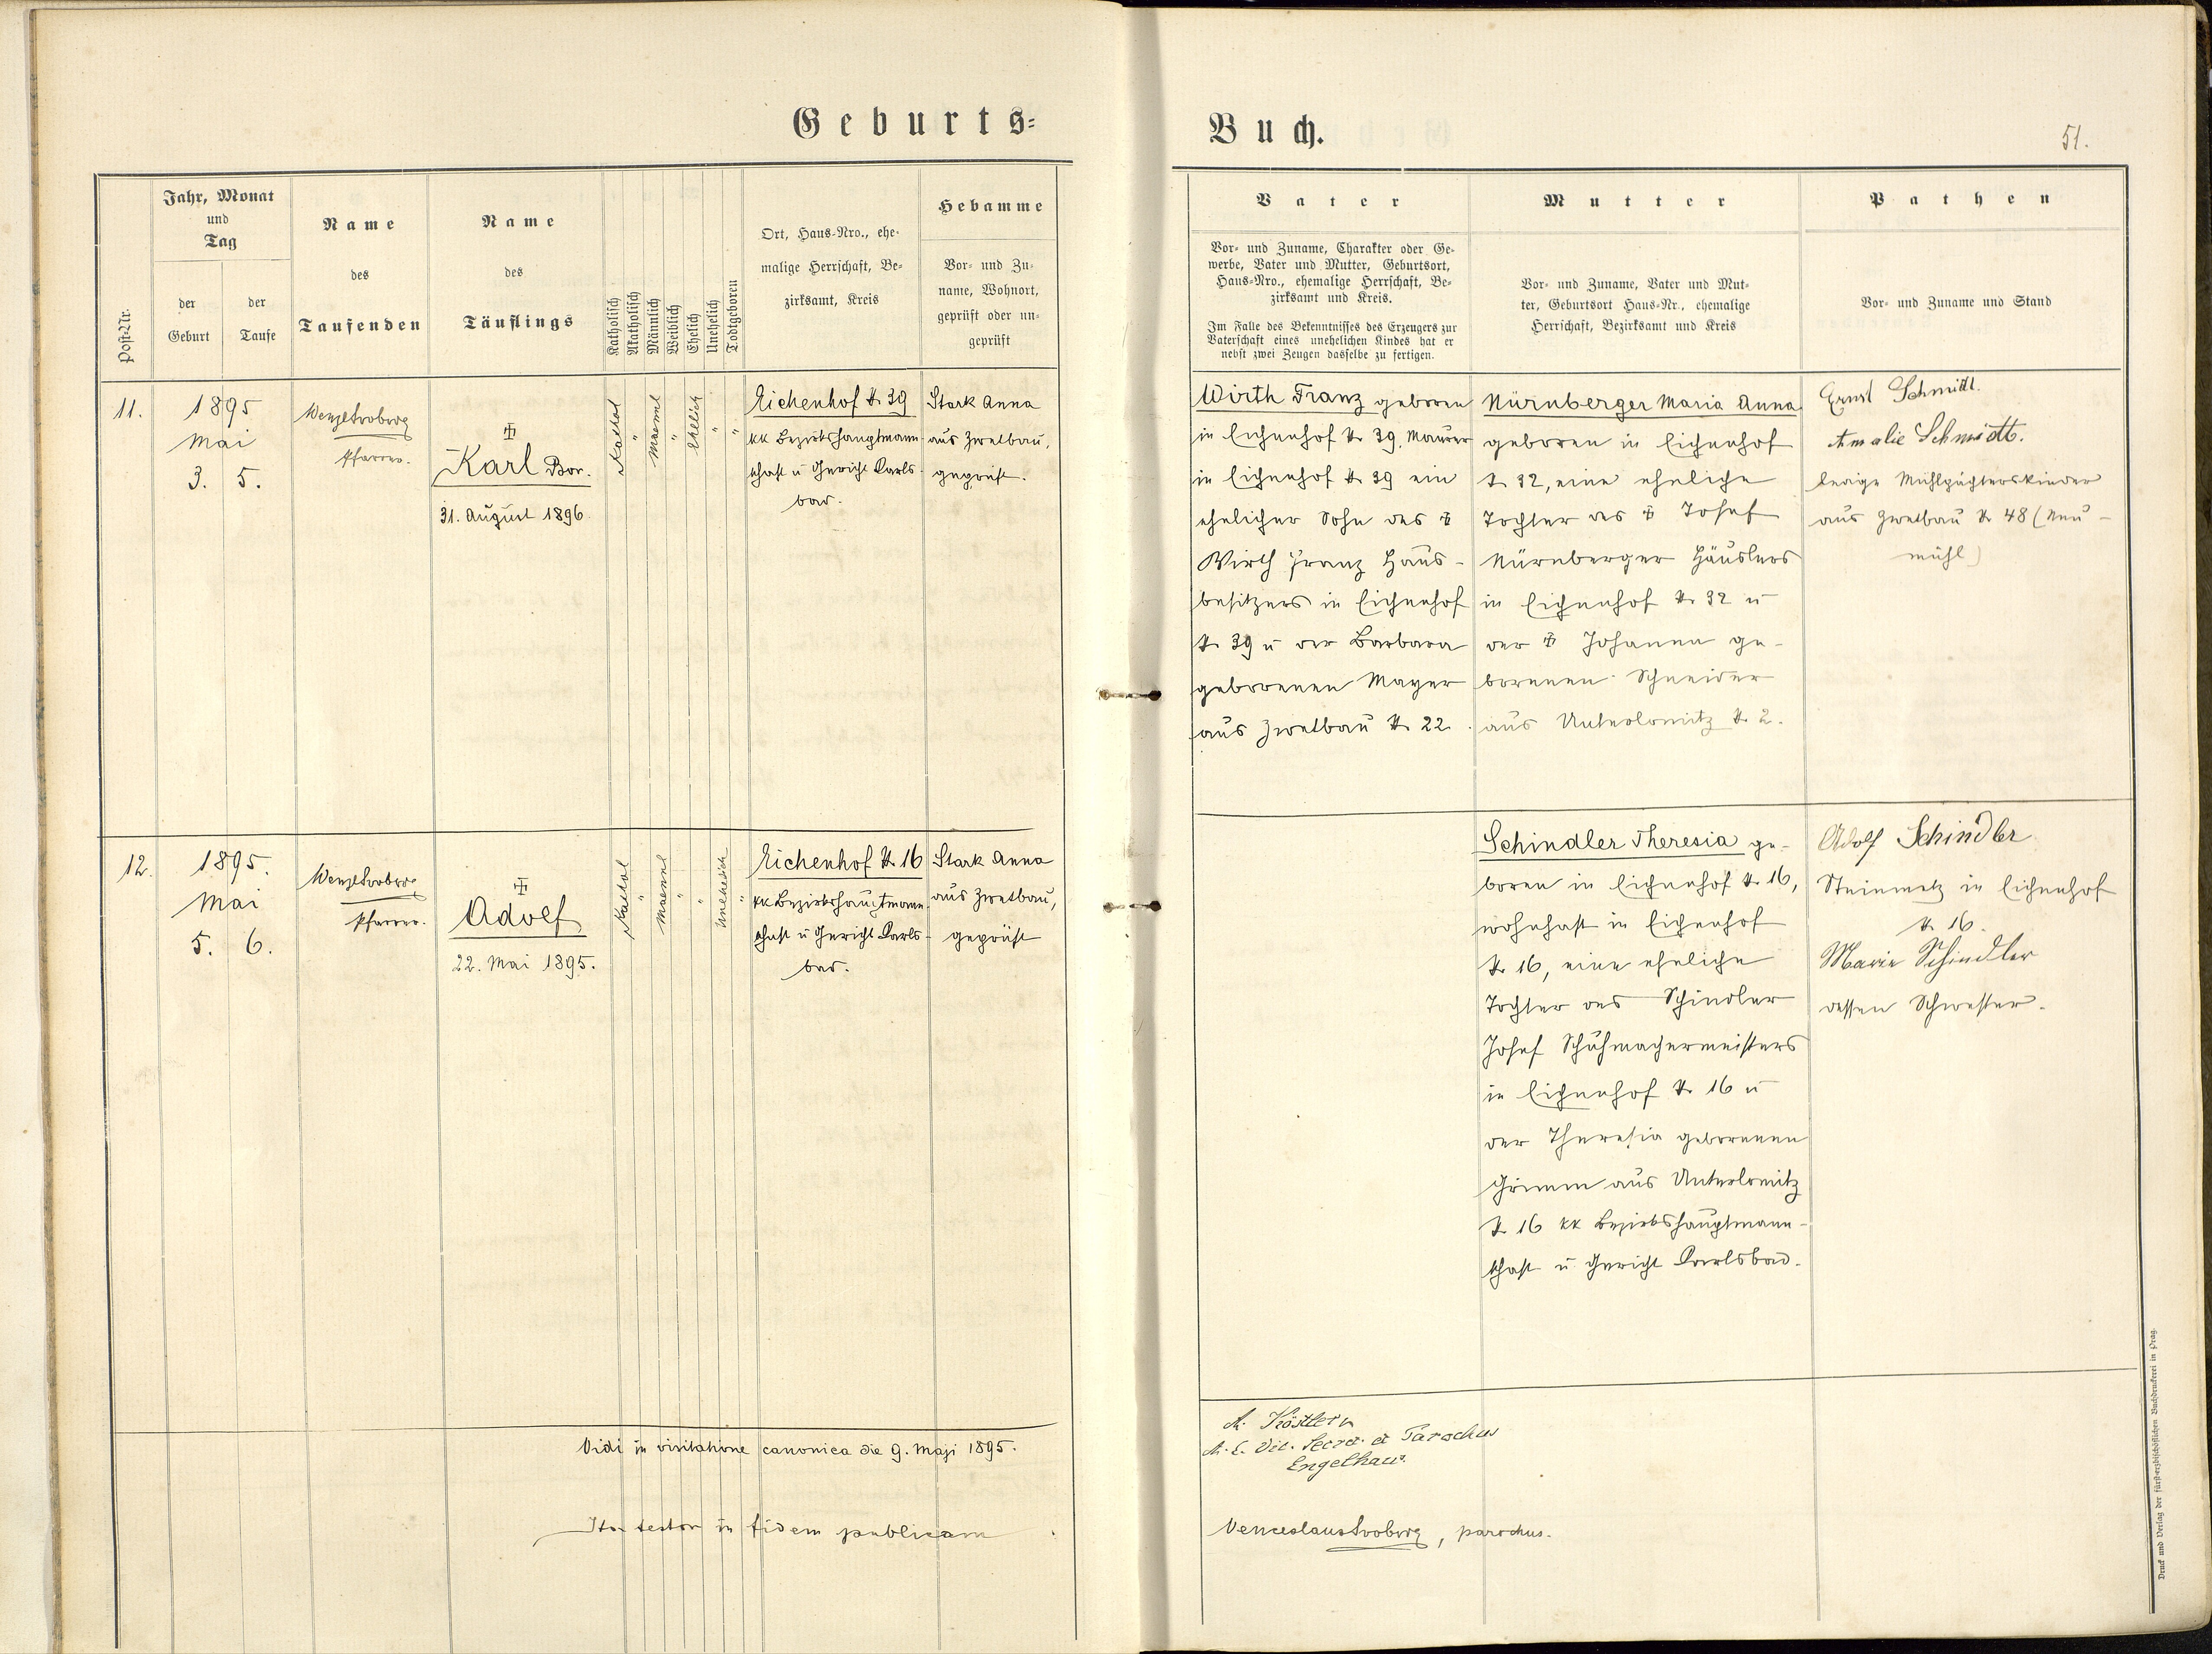 Geburts-
Buch.
51.
Post-Nr.
Jahr, Monat
und
Tag
der
Geburt
der
Taufe
Name
des
Taufenden
Name
des
Täuflings
Katholisch
Akatholisch
Männlich
Weiblich
Ehelich
Unehelich
Todtgeboren
Ort, Haus-Nro., ehe-
malige Herrschaft, Be-
zirksamt, Kreis
Hebamme
Vor- und Zu-
name, Wohnort,
geprüft oder un-
geprüft
Vater
Vor- und Zuname, Charakter oder Ge-
werbe, Vater und Mutter, Geburtsort,
Haus-Nro., ehemalige Herrschaft, Be-
zirksamt und Kreis.
Im Falle des Bekenntnisses des Erzeugers zur
Vaterschaft eines unehelichen Kindes hat er
nebst zwei Zeugen dasselbe zu fertigen.
Mutter
Vor- und Zuname, Vater und Mut-
ter, Geburtsort Haus-Nr., ehemalige
Herrschaft, Bezirksamt und Kreis
Pathen
Vor- und Zuname und Stand
11.
1895
Mai
3. 5.
Pfarrer.
Karl Bor.
31. August 1896
Kathol
"
Maennl
"
Ehelich
"
"
Eichenhof N. 39
kk Bezirkshauptmann-
schaft u Gericht Karls-
bad.
Stark Anna
aus Zwetbau,
geprüft.
Wirth Franz geboren
in Eichenhof N. 39, Maurer
in Eichenhof N. 39 ein
ehelicher Sohn des ‡
Wirth Franz Haus-
besitzers in Eichenhof
N. 39 u der Barbara
geborenen Mayer
aus Zwetbau N. 22.
Nürnberger Maria Anna
geboren in Eichenhof
N. 32, eine eheliche
Tochter des ‡ Josef
Nürnberger Häuslers
in Eichenhof N. 32 u
der ‡ Johanna ge-
borenen Schneider
aus Unterlomitz N. 2.
Ernst Schmidt.
Amalie Schmidt.
ledige Mühlpächterskinder
aus Zwetbau N. 48 (Neu-
mühl)
12.
1895.
Mai
5. 6.
Pfarrer.
Adolf
22. Mai 1895.
Kathol
"
Maennl
"
"
Unehelich
"
Eichenhof N. 16
kk Bezirkshauptmann-
schaft u Gericht Karls-
bad.
Stark Anna
aus Zwetbau,
geprüft
Schindler Theresia ge-
boren in Eichenhof N. 16,
wohnhaft in Eichenhof
N. 16, eine eheliche
Tochter des Schindler
Josef Schuhmachermeisters
in Eichenhof N. 16 u
der Theresia geborenen
Grimm aus Unterlomitz
N. 16 kk Bezirkshauptmann-
schaft u Gericht Karlsbad.
Adolf Schindler
Steinmetz in Eichenhof
N. 16.
Marie Schindler
dessen Schwester.
Vidi in visitatione canonica die 9. Maji 1895.
A. Köstler
A. E. Vic. Secret. et Parochus
Engelhaus.
Ita testor in fidem publicam
parochus.
Druck und Verlag der fürsterzbischöflichen Buchdruckerei in Prag.